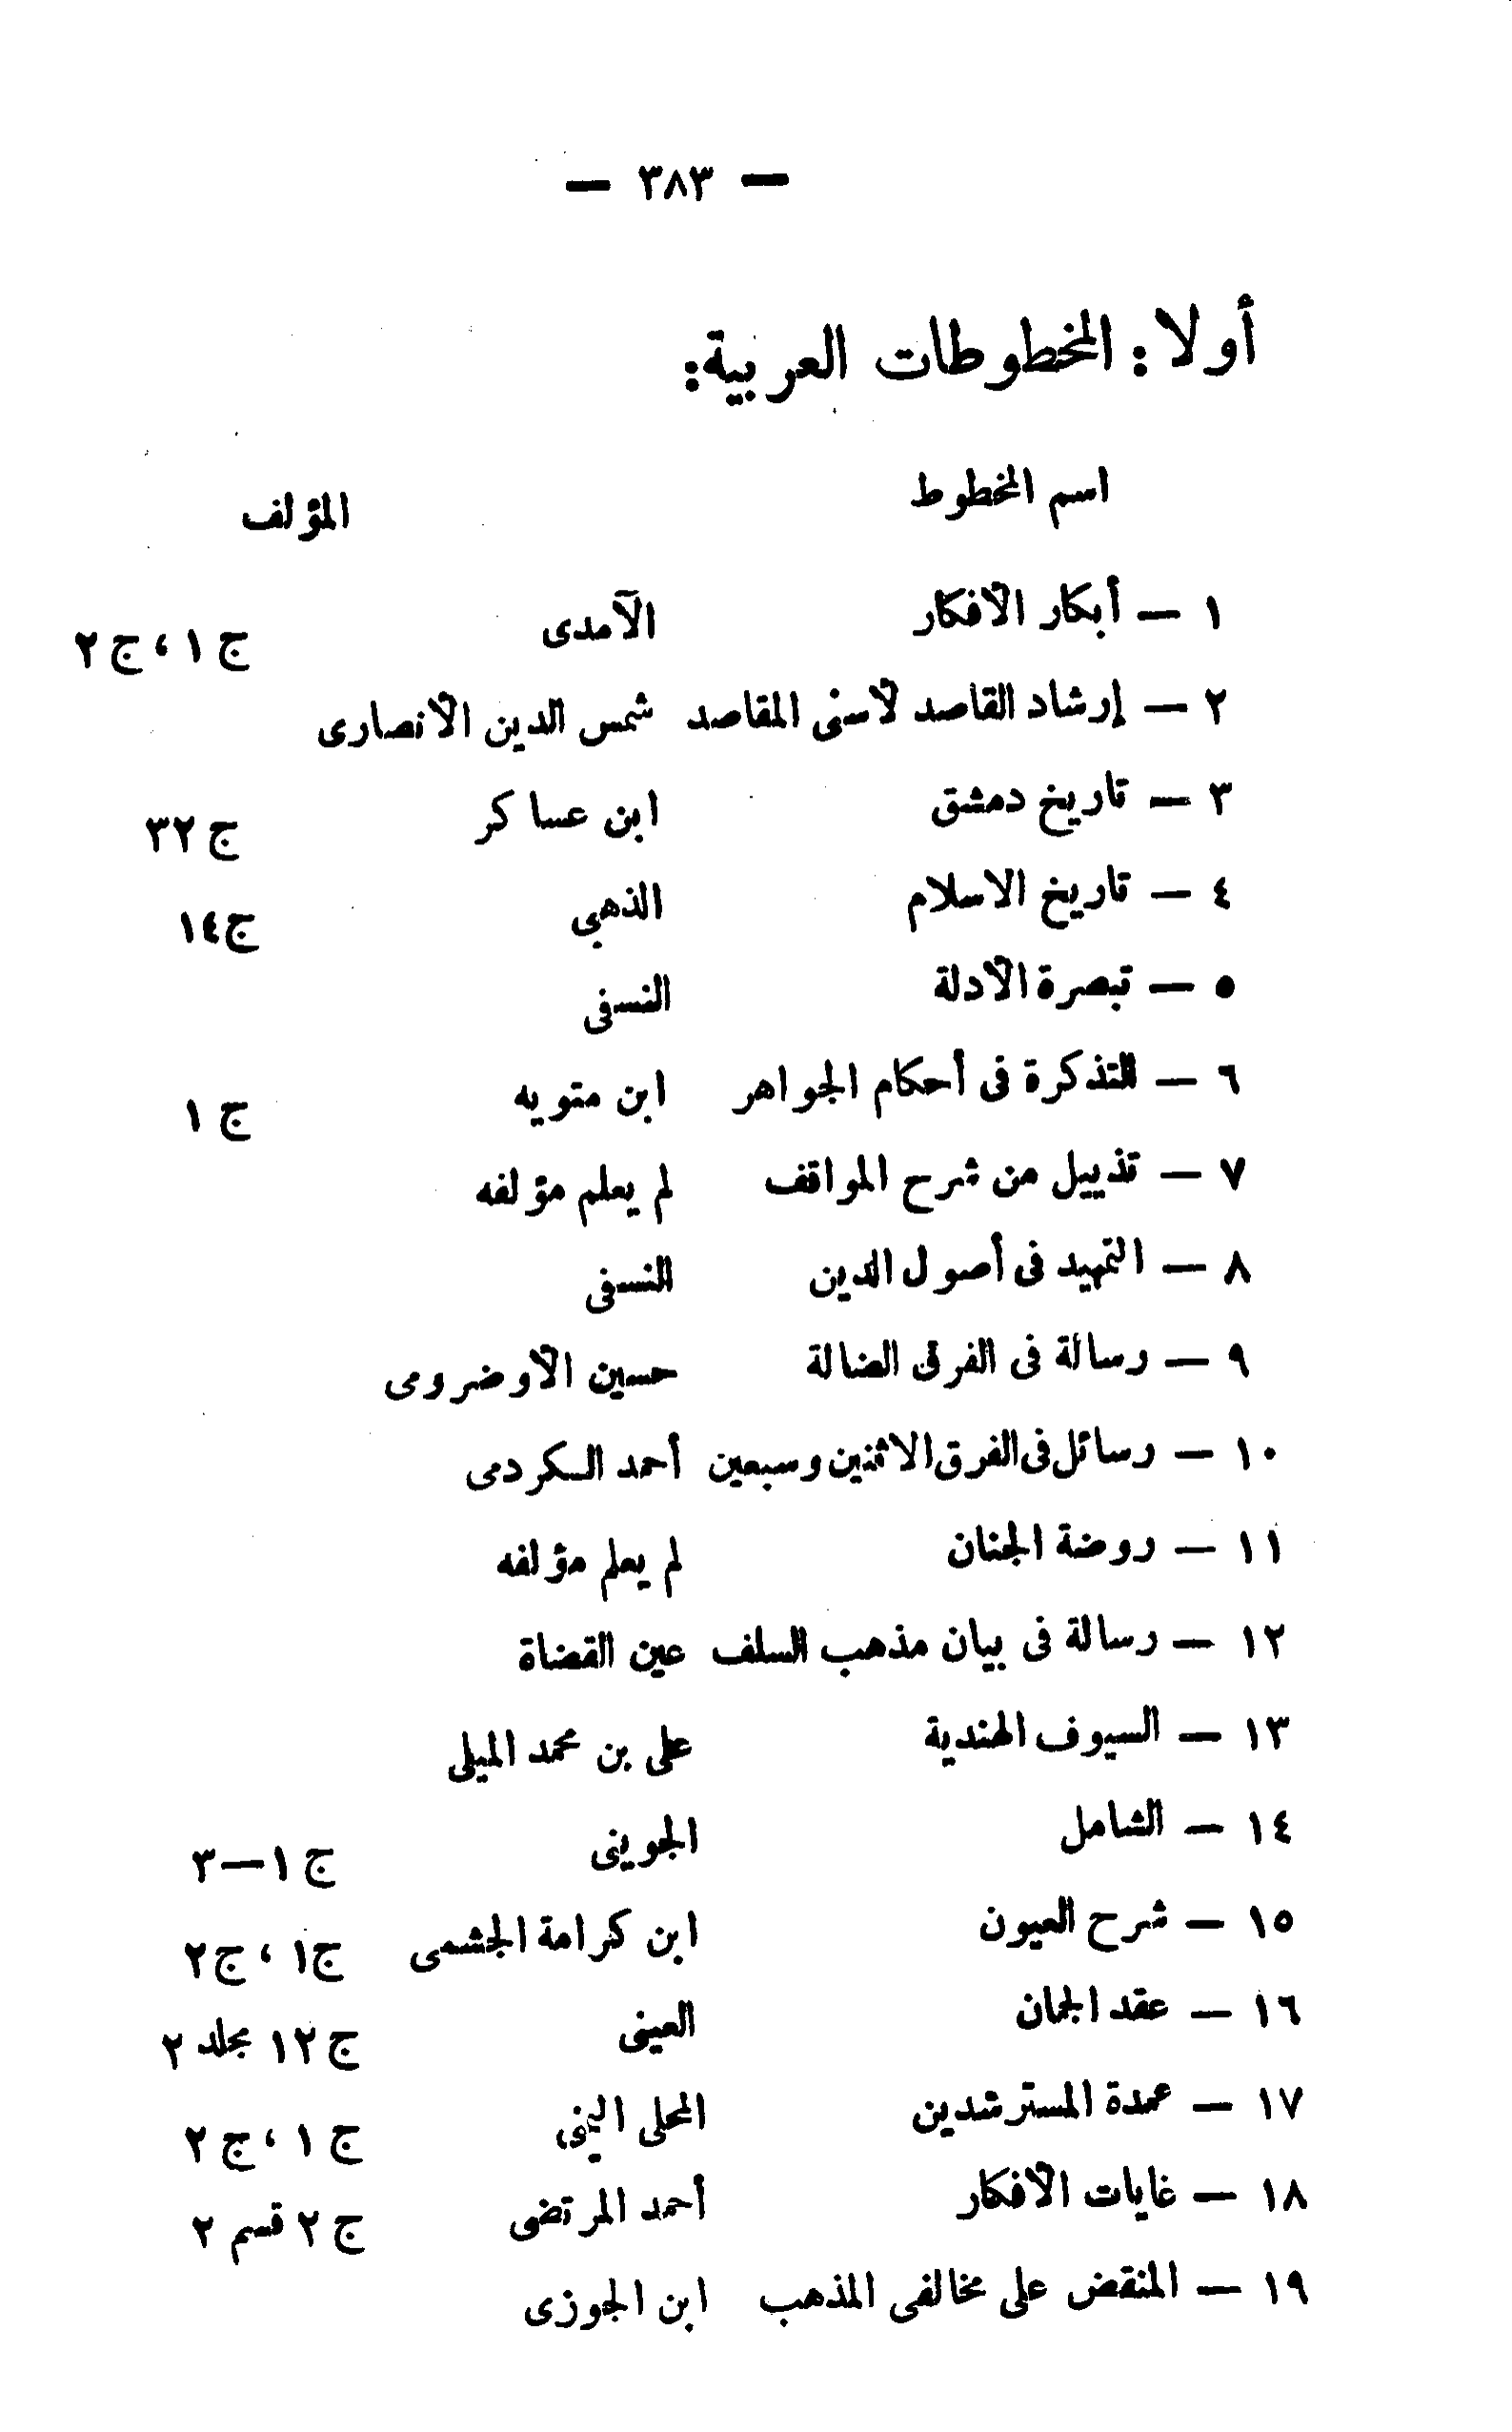 — ٣٨٣ —
أولا: المخطوطات العربية:
اسم المخطوط المؤلف
١ — أبكار الأفكار الآمدى ج ١ ، ج ٢
٢ — إرشاد القاصد لأسنى المقاصد شمس الدين الأنصارى
٣ — تاريخ دمشق ابن عساكر ج ٣٢
٤ — تاريخ الاسلام الذهبى ج١٤
٥ — تبصرة الأدلة النسفى
٦ — التذكرة فى أحكام الجواهر ابن متويه ج ١
٧ — تذييل من شرح المواقف لم يعلم مؤلفه
٨ — التمهيد فى أصول الدين النسفى
٩ — رسالة فى الفرق الضالة حسين الأوضرومى
١٠ — رسائل فى الفرق الاثنين وسبعين أحمد الكردمى
١١ — روضة الجنان لم يعلم مؤلفه
١٢ — رسالة فى بيان مذهب السلف عين القضاة
١٣ — السيوف الهندية على بن محمد الميلى
١٤ — الشامل الجوينى ج ١—٣
١٥ — شرح العيون ابن كرامة الجشمى ج١ ، ج٢
١٦ — عقد الجمان العينى ج ١٢ مجلد ٢
١٧ — عمدة المسترشدين المحلى اليمنى ج ١ ، ج ٢
١٨ — غايات الأفكار أحمد المرتضى ج ٢ قسم ٢
١٩ — المنقض على مخالفى المذهب ابن الجوزى